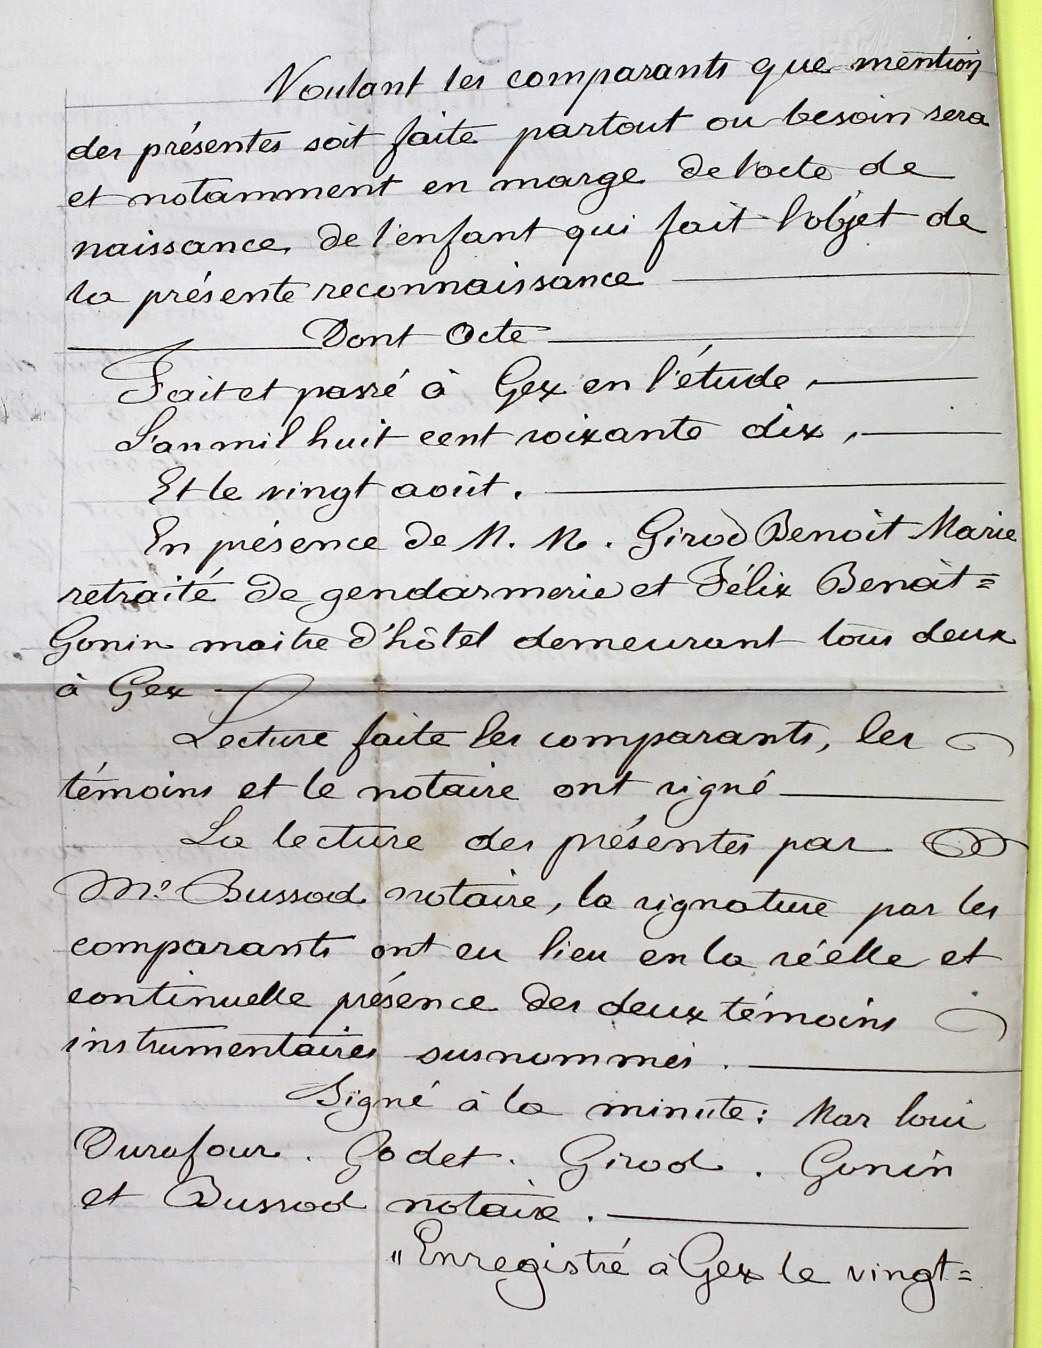 Voulant les comparants que mention
des présentes soit faite partout ou besoin sera
et notamment en marge de l'acte de
naissance de l'enfant qui fait l'objet de
la présente reconnaissance
Dont Acte
Fait et passé à Gex en l'étude,
L'an mil huit cent soixante dix,
Et le vingt août.
En présence de M. M. Girod Benoit Marie
retraité de gendarmerie et Félix Benoît=
Gonin maitre d'hôtel demeurant tous deux
à Gex
Lecture faite les comparants, les
témoins et le notaire ont signé
La lecture des présentes par
Me Bussod notaire, la signature par les
comparants ont eu lieu en la réelle et
continuelle présence des deux témoins
instrumentaires susnommés.
Signé à la minute: Mar loui
Durafour. Godet. Girod. Gonin
et Bussod notaire.
"Enregistré à Gex le vingt=